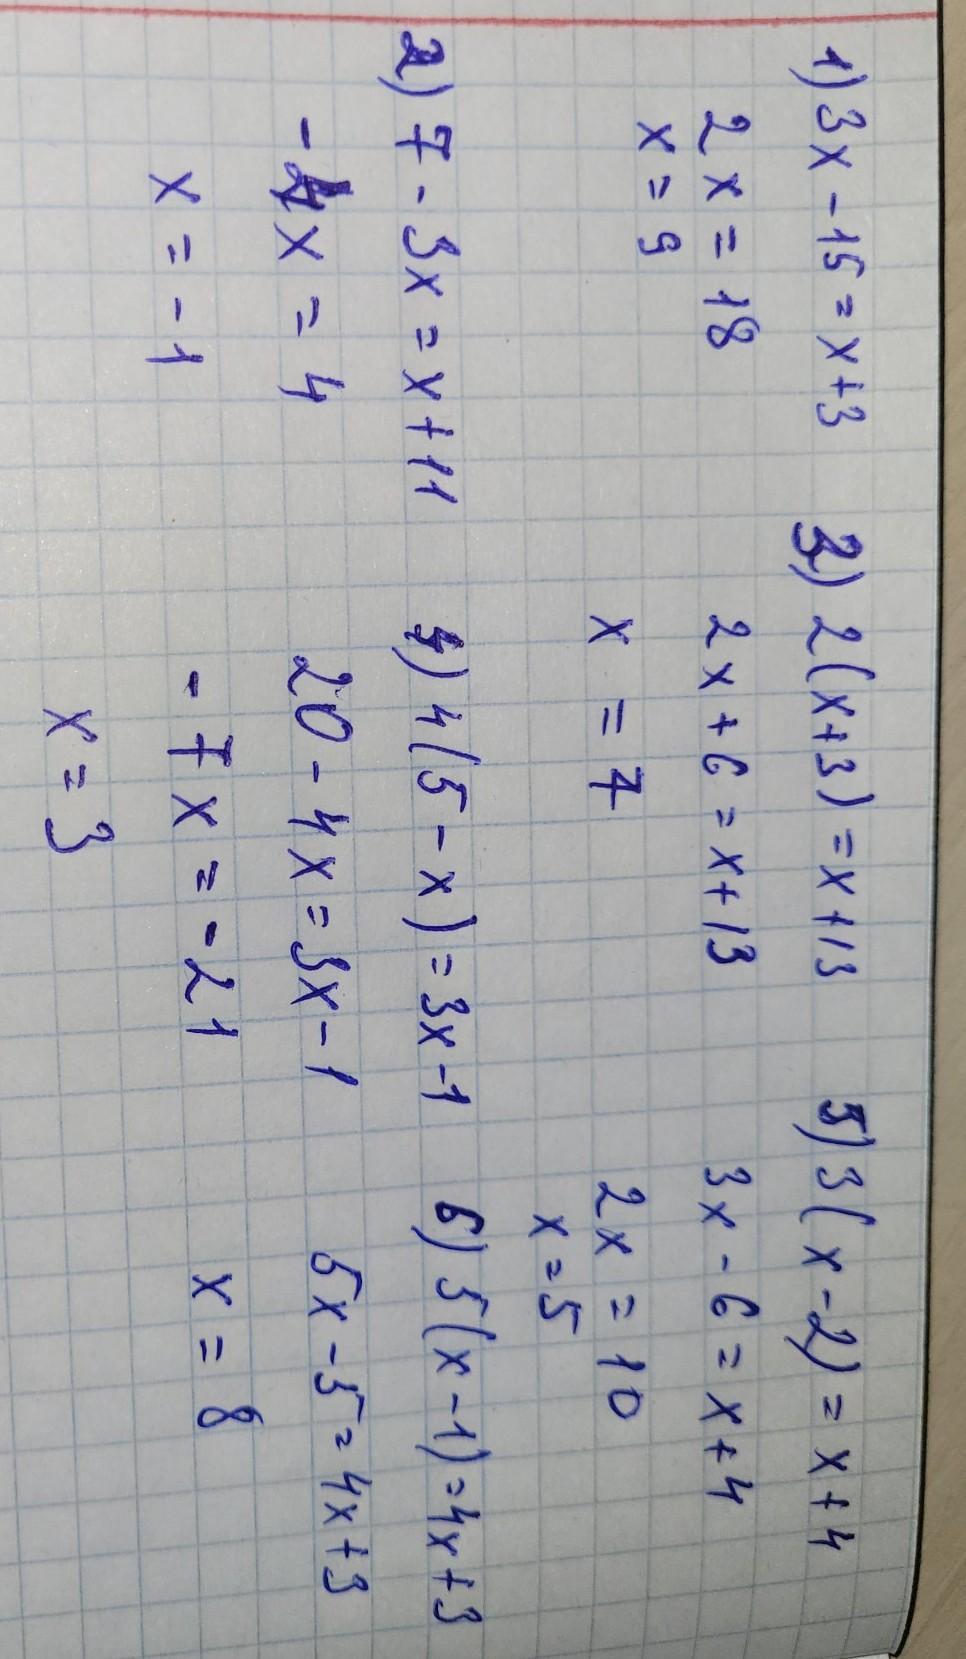 1) 3x - 15 = x + 3
2x = 18
x = 9
2) 7 - 3x = x + 11
-4x = 4
x = -1
3) 2(x+3) = x + 13
2x + 6 = x + 13
x = 7
4) 4(5 - x) = 3x - 1
20 - 4x = 3x - 1
-7x = -21
x = 3
5) 3(x - 2) = x + 4
3x - 6 = x + 4
2x = 10
x = 5
6) 5(x - 1) = 4x + 3
5x - 5 = 4x + 3
x = 8